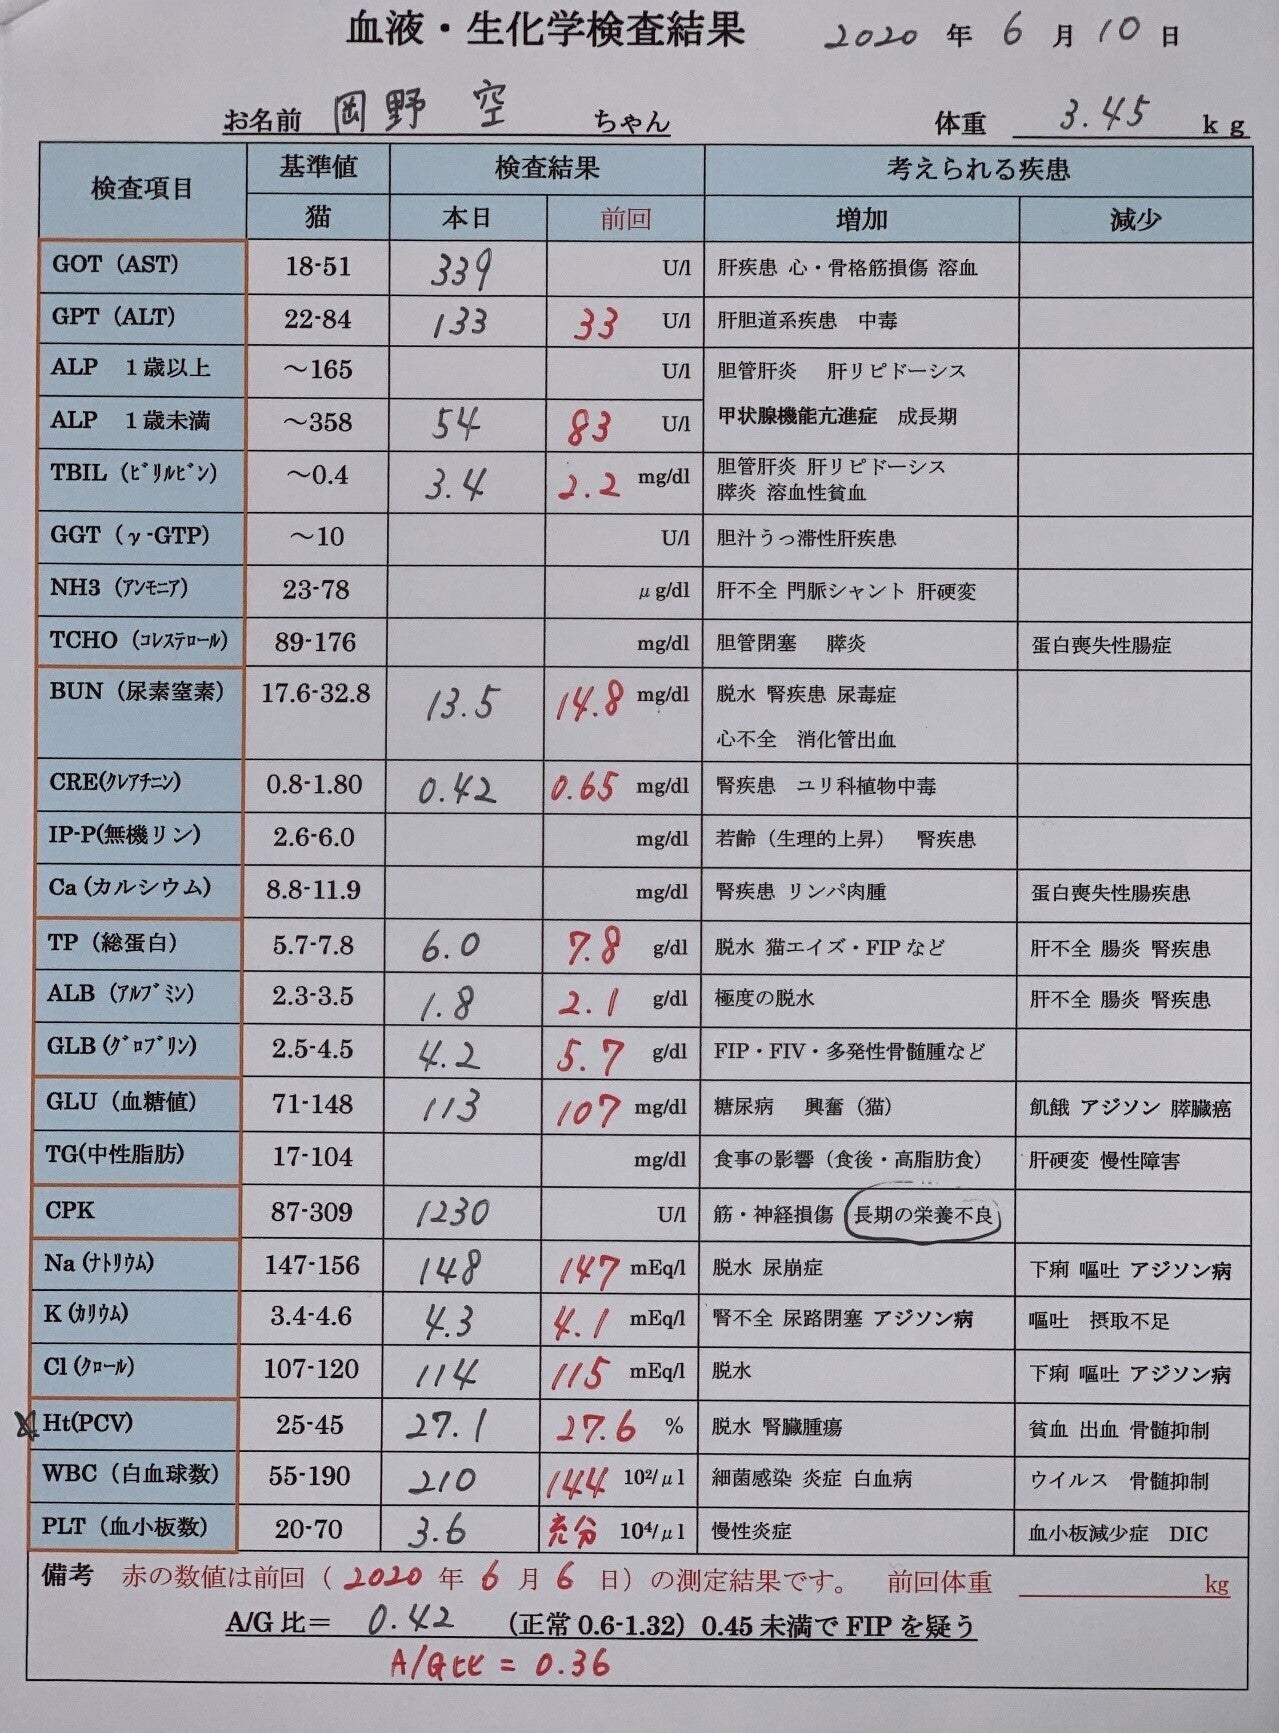 血液・生化学検査結果 2020 年 6 月 10 日
お名前 岡野 空 ちゃん 体重 3.45 kg
検査項目 基準値 検査結果 考えられる疾患
猫 本日 前回 増加 減少
GOT（AST） 18-51 339 U/l 肝疾患 心・骨格筋損傷 溶血
GPT（ALT） 22-84 133 33 U/l 肝胆道系疾患 中毒
ALP 1歳以上 ～165 U/l 胆管肝炎 肝リピドーシス
ALP 1歳未満 ～358 54 83 U/l 甲状腺機能亢進症 成長期
TBIL（ﾋﾞﾘﾙﾋﾞﾝ） ～0.4 3.4 2.2 mg/dl 胆管肝炎 肝リピドーシス
膵炎 溶血性貧血
GGT（γ-GTP） ～10 U/l 胆汁うっ滞性肝疾患
NH3（ｱﾝﾓﾆｱ） 23-78 μg/dl 肝不全 門脈シャント 肝硬変
TCHO（ｺﾚｽﾃﾛｰﾙ） 89-176 mg/dl 胆管閉塞 膵炎 蛋白喪失性腸症
BUN（尿素窒素） 17.6-32.8 13.5 14.8 mg/dl 脱水 腎疾患 尿毒症
心不全 消化管出血
CRE(ｸﾚｱﾁﾆﾝ) 0.8-1.80 0.42 0.65 mg/dl 腎疾患 ユリ科植物中毒
IP-P(無機リン) 2.6-6.0 mg/dl 若齢（生理的上昇） 腎疾患
Ca(カルシウム) 8.8-11.9 mg/dl 腎疾患 リンパ肉腫 蛋白喪失性腸疾患
TP（総蛋白） 5.7-7.8 6.0 7.8 g/dl 脱水 猫エイズ・FIPなど 肝不全 腸炎 腎疾患
ALB（ｱﾙﾌﾞﾐﾝ） 2.3-3.5 1.8 2.1 g/dl 極度の脱水 肝不全 腸炎 腎疾患
GLB(ｸﾞﾛﾌﾞﾘﾝ) 2.5-4.5 4.2 5.7 g/dl FIP・FIV・多発性骨髄腫など
GLU（血糖値） 71-148 113 107 mg/dl 糖尿病 興奮（猫） 飢餓 アジソン 膵臓癌
TG(中性脂肪) 17-104 mg/dl 食事の影響（食後・高脂肪食） 肝硬変 慢性障害
CPK 87-309 1230 U/l 筋・神経損傷 長期の栄養不良
Na(ﾅﾄﾘｳﾑ) 147-156 148 147 mEq/l 脱水 尿崩症 下痢 嘔吐 アジソン病
K(ｶﾘｳﾑ) 3.4-4.6 4.3 4.1 mEq/l 腎不全 尿路閉塞 アジソン病 嘔吐 摂取不足
Cl(ｸﾛｰﾙ) 107-120 114 115 mEq/l 脱水 下痢 嘔吐 アジソン病
Ht(PCV) 25-45 27.1 27.6 % 脱水 腎臓腫瘍 貧血 出血 骨髄抑制
WBC（白血球数） 55-190 210 144 10²/μl 細菌感染 炎症 白血病 ウイルス 骨髄抑制
PLT（血小板数） 20-70 3.6 充分 10⁴/μl 慢性炎症 血小板減少症 DIC
備考 赤の数値は前回（2020 年 6 月 6 日）の測定結果です。 前回体重 kg
A/G 比＝ 0.42 （正常 0.6-1.32）0.45 未満で FIP を疑う
A/G比 = 0.36